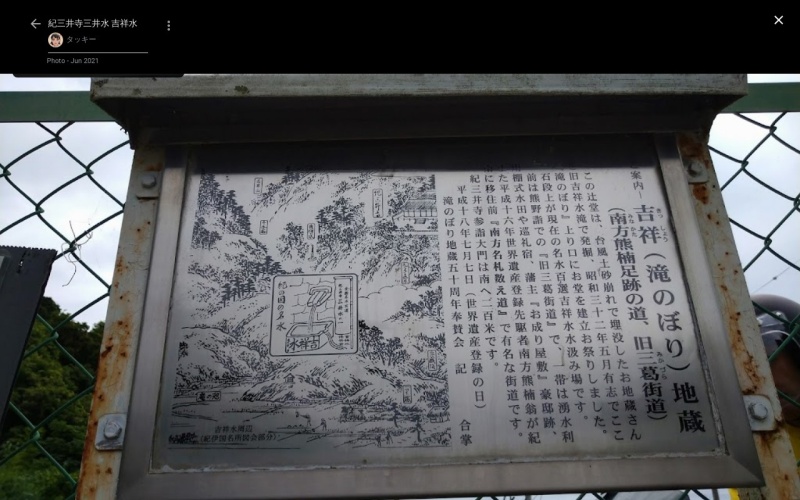 紀三井寺三井水 吉祥水
タッキー
Photo - Jun 2021
案内−吉祥(滝のぼり)地蔵
きっしょう
(南方熊楠足跡の道、旧三葛街道)
みなかた
みかづら
この辻堂は、台風土砂崩れで埋没したお地蔵さん
旧吉祥水滝で発掘、昭和三十二年五月有志でここ
『滝のぼり』上り口にお堂を建立お祭りしました。
石段上が現在の名水百選吉祥水水汲み場です。
前は熊野詣での『旧三葛街道』で、一帯は湧水利
棚式水田や巡礼宿、藩主『お成り屋敷』豪邸跡。
た平成十六年世界遺産登録先駆者南方熊楠翁が紀
に移住前『南方名札数え道』で有名な街道です。
紀三井寺参詣大門は南へ二百米です。
平成十八年七月七日(世界遺産登録の日)
滝のぼり地蔵五十周年奉賛会 記
合掌
紀の国の名水
吉祥水
吉祥水周辺
(紀伊国名所図会部分)